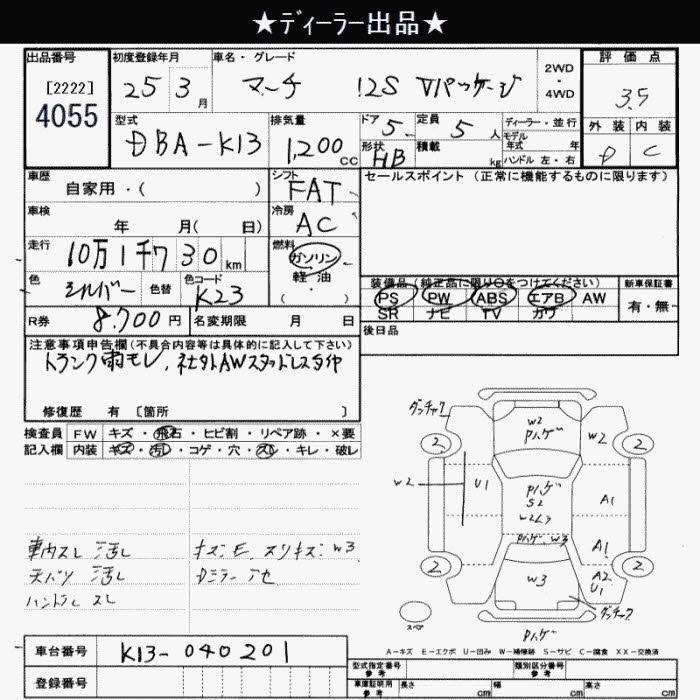 ★ディーラー出品★
出品番号
[2222]
4055
初度登録年月
25 3 月
車名・グレード
マーチ 12S Vパッケージ
2WD
・
4WD
評価点
3.5
外装 内装
D C
型式
DBA-K13
排気量
1,200 cc
ドア 5
定員 5 人
形状 HB
積載 kg
ディーラー・並行
モデル
年式 年
ハンドル 左・右
車歴
自家用・( )
シフト
FAT
セールスポイント (正常に機能するものに限ります)
車検
年 月( 日)
冷房
AC
走行
10万1千7 30 km
燃料
ガソリン
軽・油
・
( )
色
シルバー
色替
色コード
K23
装備品 (純正品に限り○をつけてください)
PS PW ABS エアB AW
SR ナビ TV カワ
新車保証書
有・無
R券 8,700 円
名変期限 月 日
後日品
注意事項申告欄 (不具合内容等は具体的に記入して下さい)
トランク雨モレ、社外AWスタッドレスタイヤ
修復歴 有 [箇所 ]
検査員 FW キズ・飛石・ヒビ割・リペア跡・×要
記入欄 内装 キズ・汚れ・コゲ・穴・スレ・キレ・破レ
車内スレ 汚レ
キズ・E スリキズ W3
天バリ 汚レ
ハンドル スレ
ダッチャク
W2
Pハゲ
W2
2 2
W2
U1
Pハゲ
S2
A1
W2ムラ
Pハゲ W3
A1
2 2
W3
A2
U1
ダッチャク
スペア
Pハゲ
A-キズ E-エクボ U-凹み W-補修跡 S-サビ C-腐食 XX-交換済
車台番号
K13-040201
登録番号
型式指定番号
参考
類別区分番号
参考
車庫証明用
参考
長さ cm 幅 cm 高さ cm